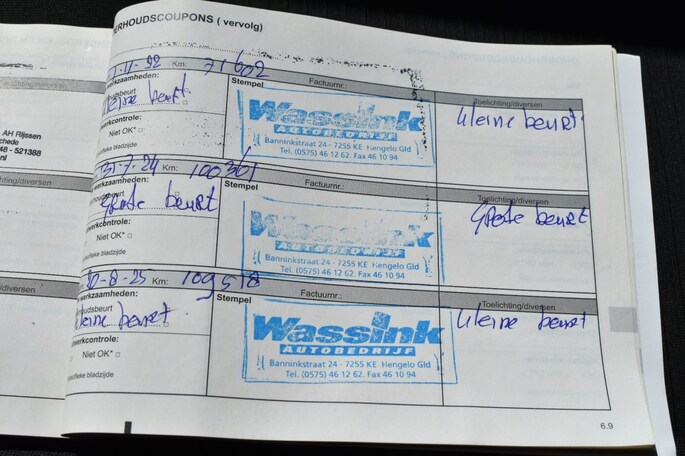 ERHOUDSCOUPONS ( vervolg)
1-11-92 Km: 71602
rkzaamheden: Stempel Factuurnr.: Toelichting/diversen
dsbeurt kleine beurt
kleine beurt
rkcontrole:
Niet OK*
Wassink
AUTOBEDRIJF
Banninkstraat 24 - 7255 KE Hengelo Gld
Tel. (0575) 46 12 62. Fax 46 10 94
AH Rijssen
chede
48 - 521388
nl
31-7-24 Km: 100361
werkzaamheden: Stempel Factuurnr.: Toelichting/diversen
Grote beurt
Grote beurt
erkcontrole:
Niet OK*
ecifieke bladzijde
Wassink
AUTOBEDRIJF
Banninkstraat 24 - 7255 KE Hengelo Gld
Tel. (0575) 46 12 62. Fax 46 10 94
chting/diversen
20-8-25 Km: 109518
erkzaamheden: Stempel Factuurnr.: Toelichting/diversen
oudsbeurt
kleine beurt
kleine beurt
rkcontrole:
Niet OK*
ecifieke bladzijde
Wassink
AUTOBEDRIJF
Banninkstraat 24 - 7255 KE Hengelo Gld
Tel. (0575) 46 12 62. Fax 46 10 94
g/diversen
6.9